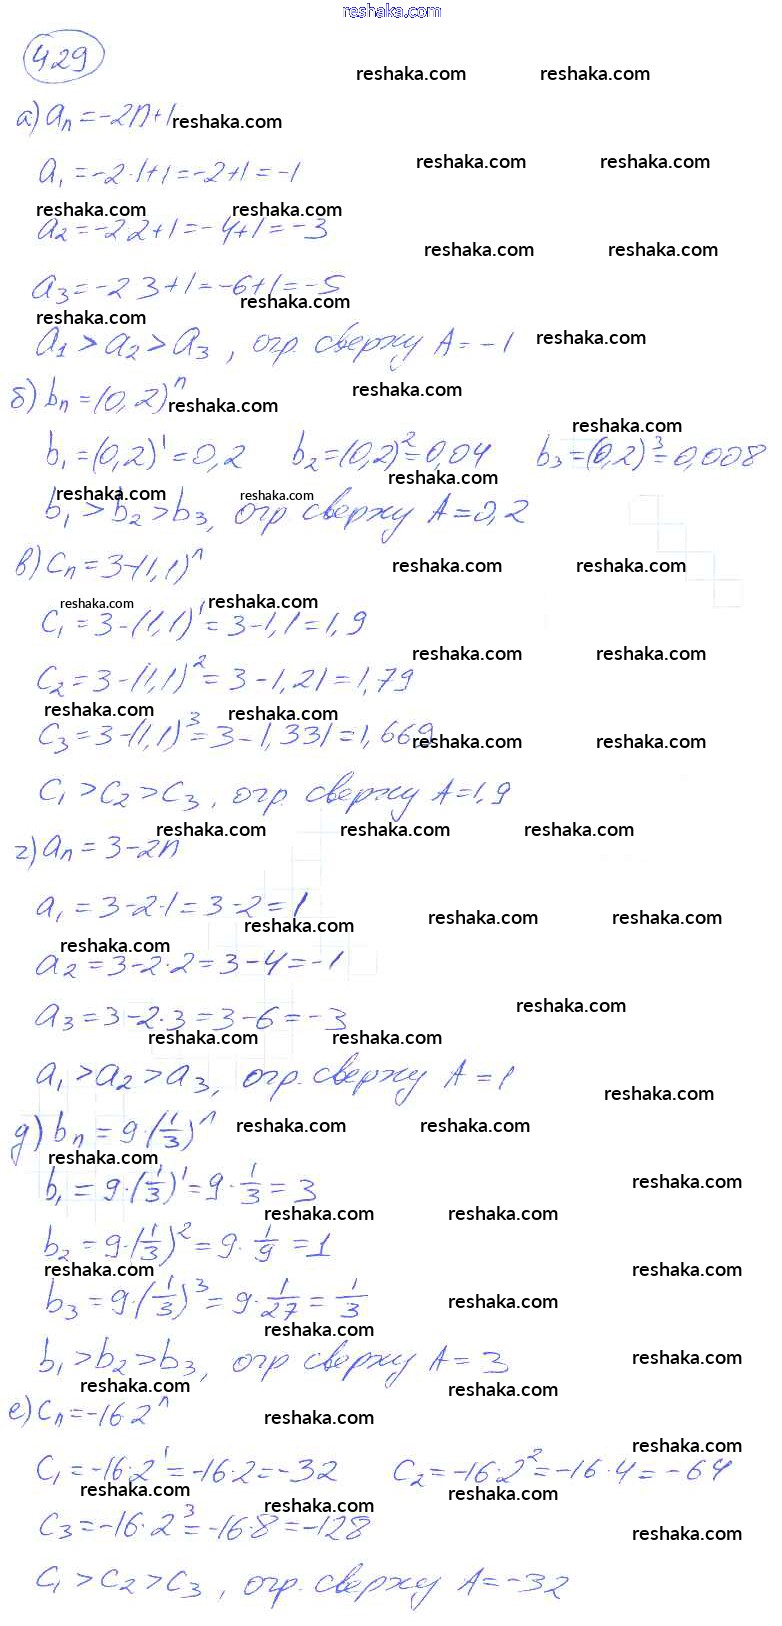 reshaka.com
429
reshaka.com reshaka.com
а) aₙ = -2n+1 reshaka.com
a₁ = -2·1+1 = -2+1 = -1 reshaka.com reshaka.com
reshaka.com reshaka.com
a₂ = -2·2+1 = -4+1 = -3 reshaka.com reshaka.com
a₃ = -2·3+1 = -6+1 = -5
reshaka.com
reshaka.com
a₁ > a₂ > a₃, огр. сверху A = -1 reshaka.com
reshaka.com
б) bₙ = (0,2)ⁿ reshaka.com
reshaka.com
b₁ = (0,2)¹ = 0,2 b₂ = (0,2)² = 0,04 b₃ = (0,2)³ = 0,008
reshaka.com
reshaka.com reshaka.com
b₁ > b₂ > b₃, огр сверху A = 0,2
в) cₙ = 3-(1,1)ⁿ reshaka.com reshaka.com
reshaka.com reshaka.com
c₁ = 3-(1,1)¹ = 3-1,1 = 1,9
reshaka.com reshaka.com
c₂ = 3-(1,1)² = 3-1,21 = 1,79
reshaka.com reshaka.com
c₃ = 3-(1,1)³ = 3-1,331 = 1,669 reshaka.com reshaka.com
c₁ > c₂ > c₃, огр. сверху A = 1,9
reshaka.com reshaka.com reshaka.com
г) aₙ = 3-2n
a₁ = 3-2·1 = 3-2 = 1 reshaka.com reshaka.com
reshaka.com
reshaka.com
a₂ = 3-2·2 = 3-4 = -1
reshaka.com
a₃ = 3-2·3 = 3-6 = -3
reshaka.com reshaka.com
a₁ > a₂ > a₃, огр. сверху A = 1
reshaka.com
д) bₙ = 9·(1/3)ⁿ reshaka.com reshaka.com
reshaka.com
b₁ = 9·(1/3)¹ = 9·1/3 = 3 reshaka.com
reshaka.com reshaka.com
b₂ = 9·(1/3)² = 9·1/9 = 1
reshaka.com reshaka.com
b₃ = 9·(1/3)³ = 9·1/27 = 1/3 reshaka.com
reshaka.com
b₁ > b₂ > b₃, огр сверху A = 3 reshaka.com
reshaka.com reshaka.com
е) cₙ = -16·2ⁿ reshaka.com
reshaka.com
c₁ = -16·2¹ = -16·2 = -32 c₂ = -16·2² = -16·4 = -64
reshaka.com reshaka.com
reshaka.com
c₃ = -16·2³ = -16·8 = -128 reshaka.com
c₁ > c₂ > c₃, огр. сверху A = -32